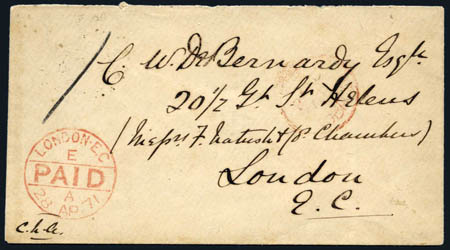 C. W. De Bernardy Esqre
20 1/2 Gt St Helens
(Messrs F. & Chambers)
London
E.C.
LONDON·E.C
E
PAID
A
28 AP 71